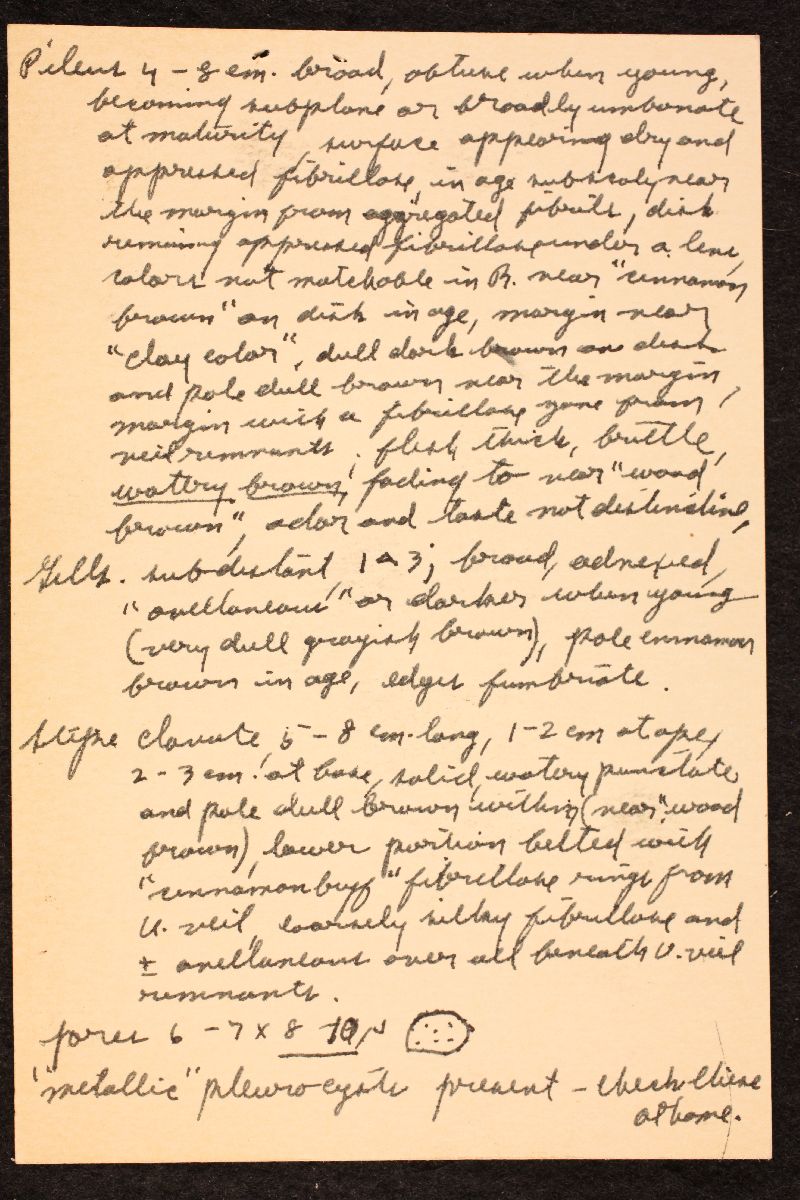 Pileus 4 - 8 cm. broad, obtuse when young,
becoming subplane or broadly umbonate
at maturity, surface appearing dry and
appressed fibrillose, in age subscaly near
the margin from aggregated fibrils, disk
remaining appressed fibrillose under a lens,
colors not matchable in R. near "cinnamon
brown" on disk in age, margin near
"clay color", dull dark brown on disk
and pale dull brown near the margin,
margin with a fibrillose zone from
veil remnants; flesh thick, brittle,
watery brown, fading to near "wood
brown", odor and taste not distinctive,
Gills. subdistant, 1 3; broad, adnexed,
"avellaneous" or darker when young
(very dull grayish brown), pale cinnamon
brown in age, edges fimbriate.
Stipe clavate, 5 - 8 cm. long, 1-2 cm at apex
2 - 3 cm. at base, solid, watery punctate
and pale dull brown within (near "wood
brown), lower portion belted with
"cinnamon buff" fibrillose rings from
U. veil, coarsely silky fibrillose and
± avellaneous over all beneath U. veil
remnants.
pores 6 - 7 x 8 10 µ
"metallic" pleurocysts present - check these
at home.